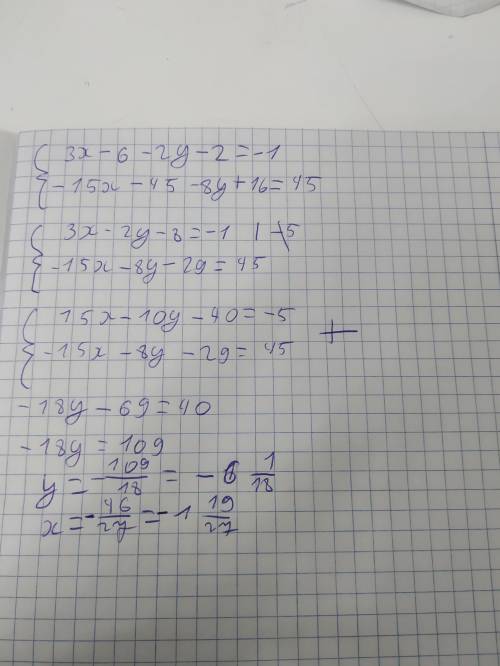 { 3x - 6 - 2y - 2 = -1
-15x - 45 - 8y + 16 = 45
{ 3x - 2y - 8 = -1 | ·5
-15x - 8y - 29 = 45
{ 15x - 10y - 40 = -5 +
-15x - 8y - 29 = 45
-18y - 69 = 40
-18y = 109
y = -109/18 = -6 1/18
x = -46/27 = -1 19/27